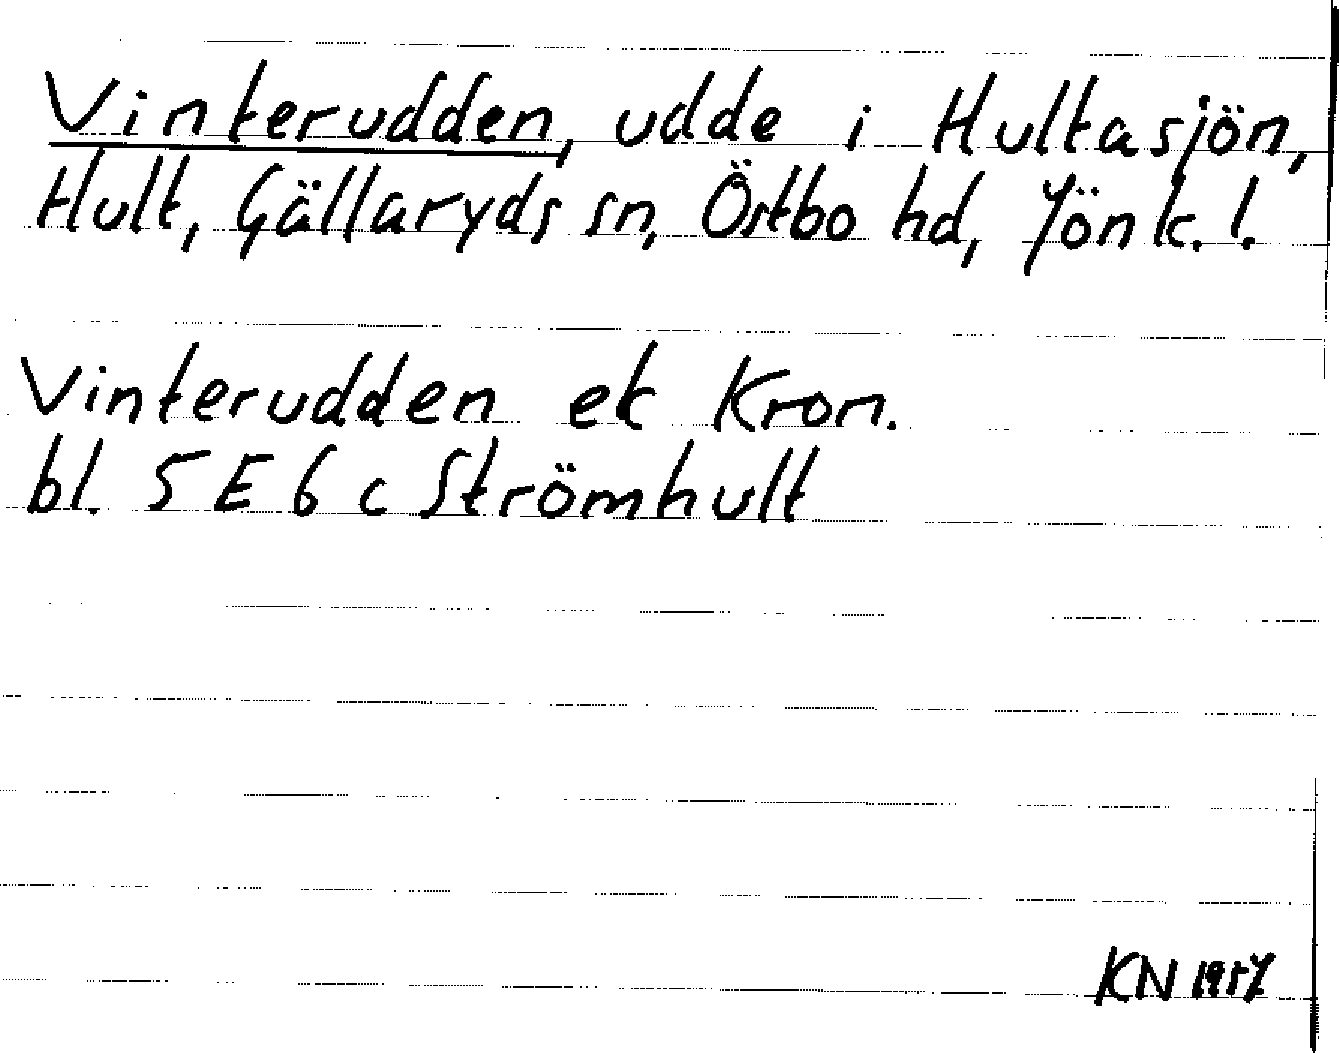 Vinterudden, udde i Hultasjön,
Hult, Gällaryds sn, Östbo hd, Jönk. l.
Vinterudden ek Kron.
bl. 5 E 6 c Strömhult
KN 1957